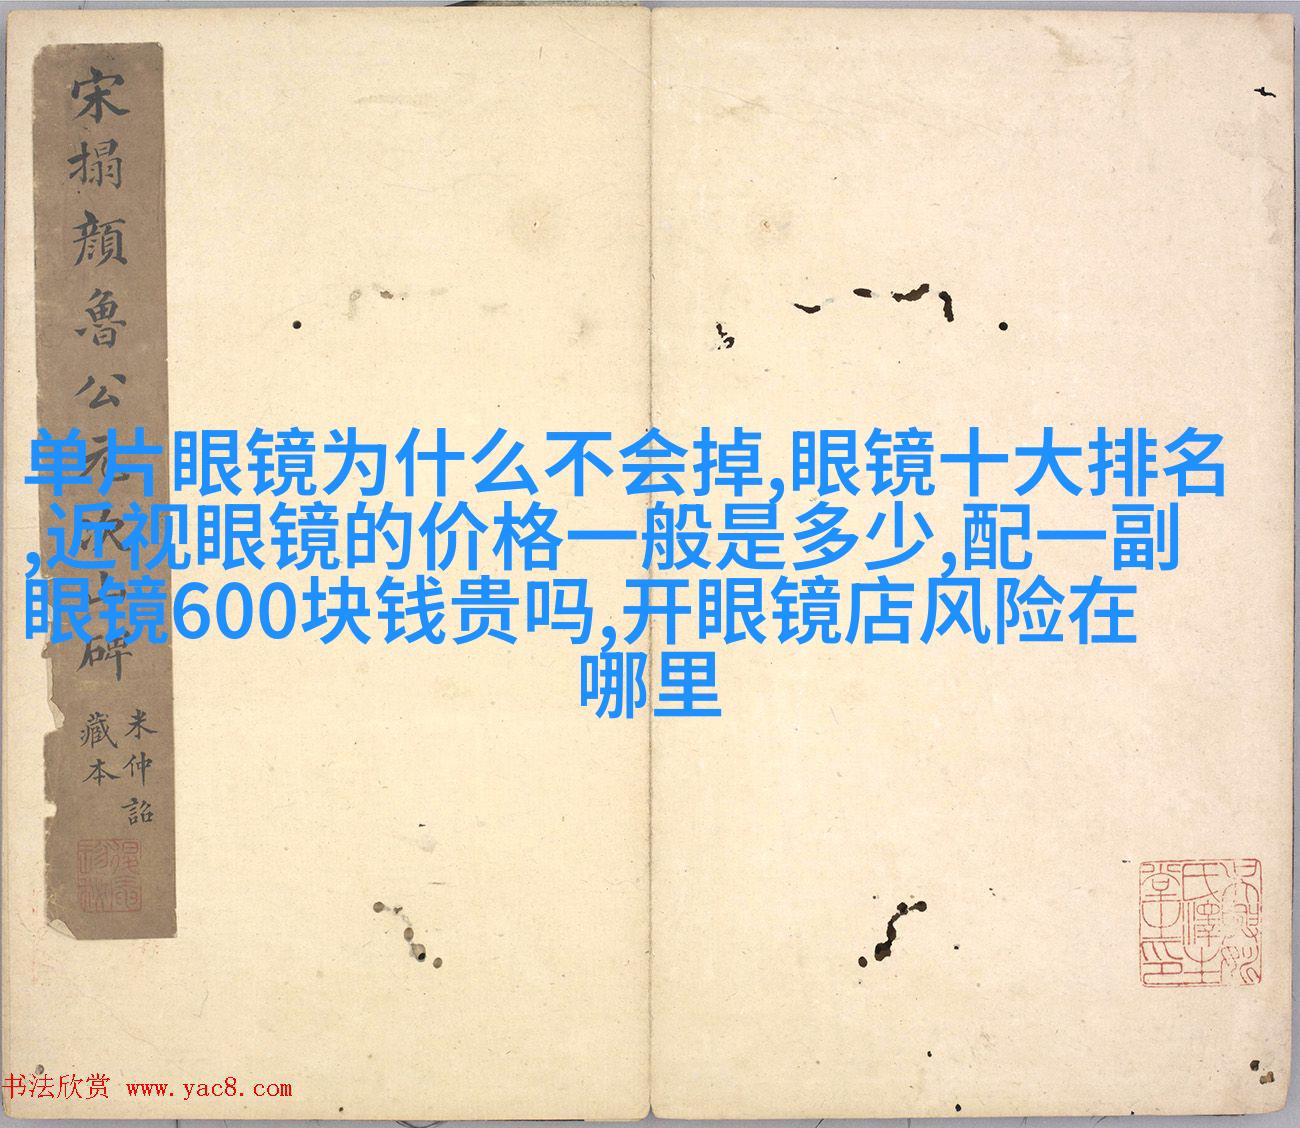 宋搨顏魯公元次山碑
米仲詔
藏本
单片眼镜为什么不会掉,眼镜十大排名
,近视眼镜的价格一般是多少,配一副
眼镜600块钱贵吗,开眼镜店风险在
哪里
书法欣赏 www.yac8.com